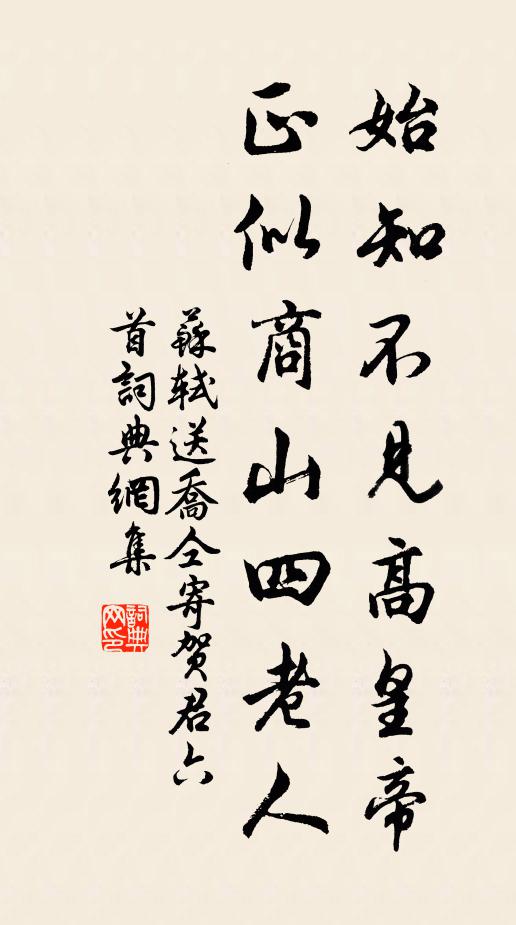 始知不見高皇帝
正似商山四老人
蘇軾送喬仝寄賀君六
首詞典網集
詞典
网印